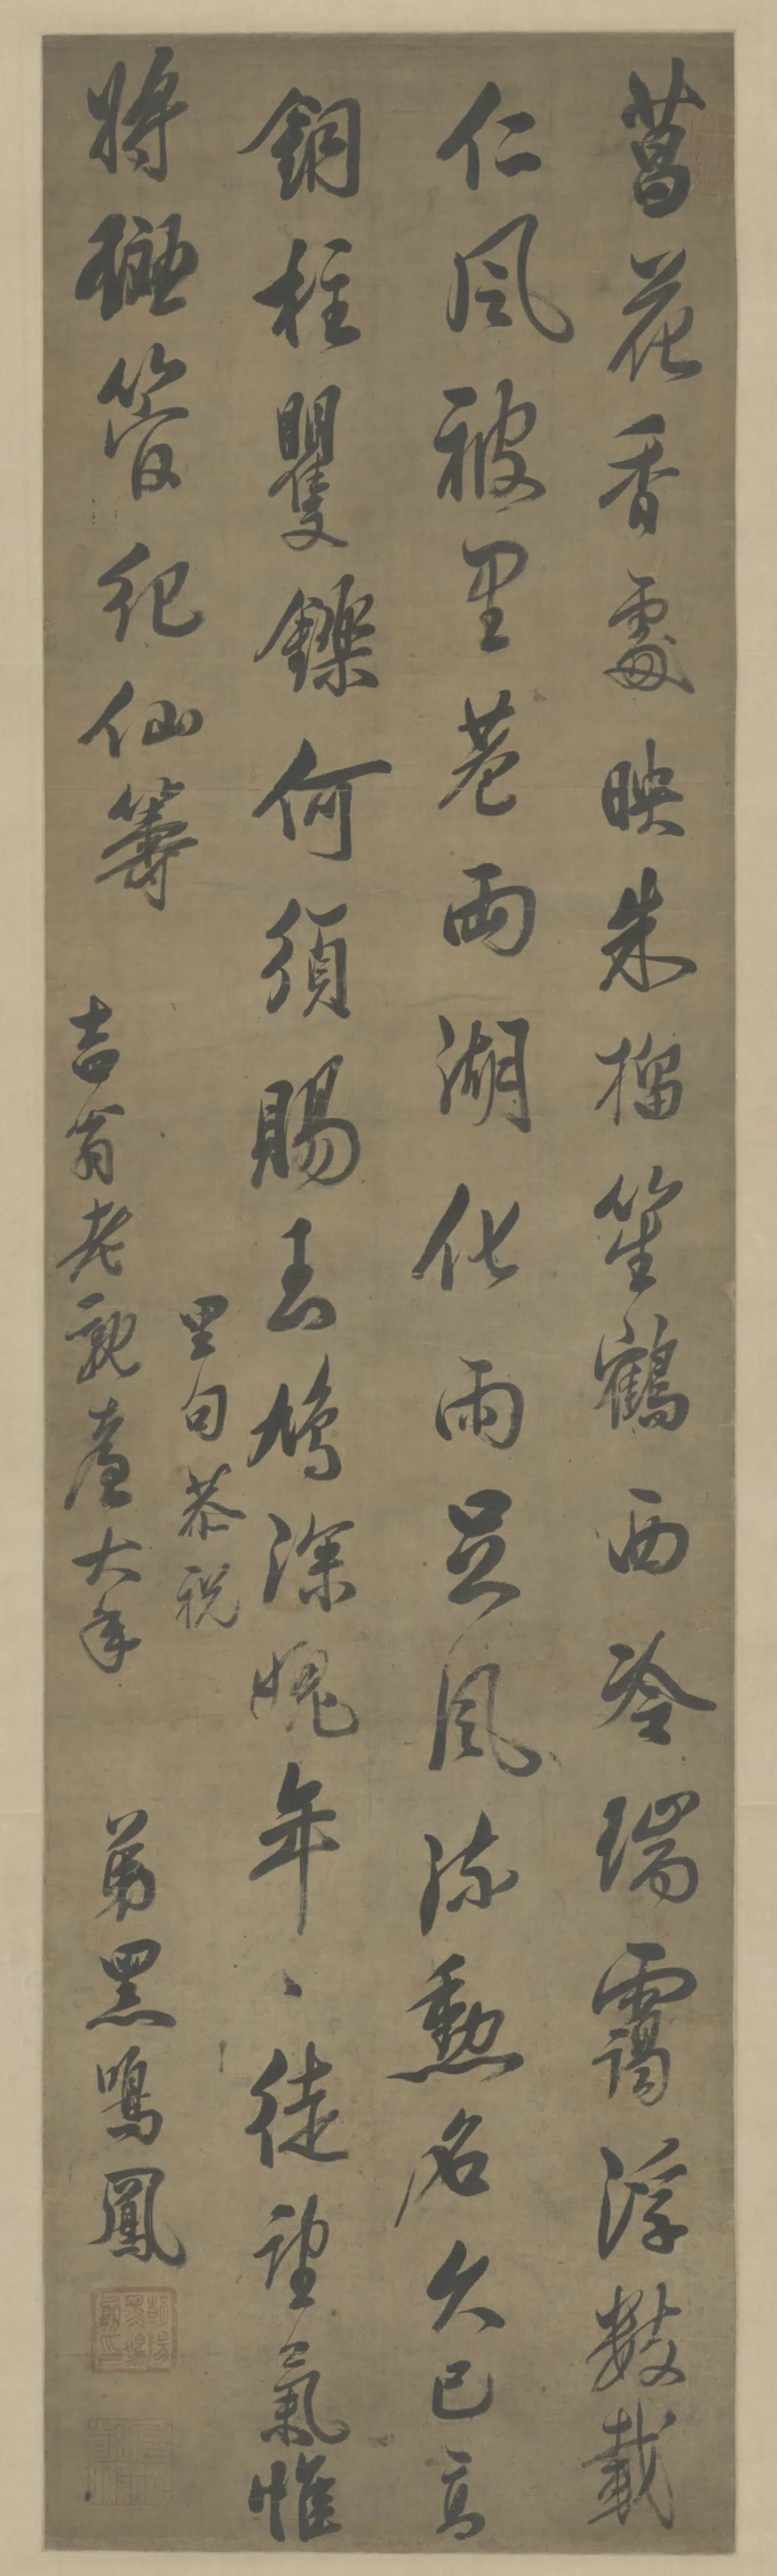 菖花香處映朱榴笙鶴西泠瑞靄浮數載
仁風被里巷兩湖化雨足風流勳名久已高
銅柱矍鑠何須賜玉鳩深愧年、徒望氣惟
將管紀仙籌
里句恭祝
吉翁老親臺大年
弟黑鳴鳳